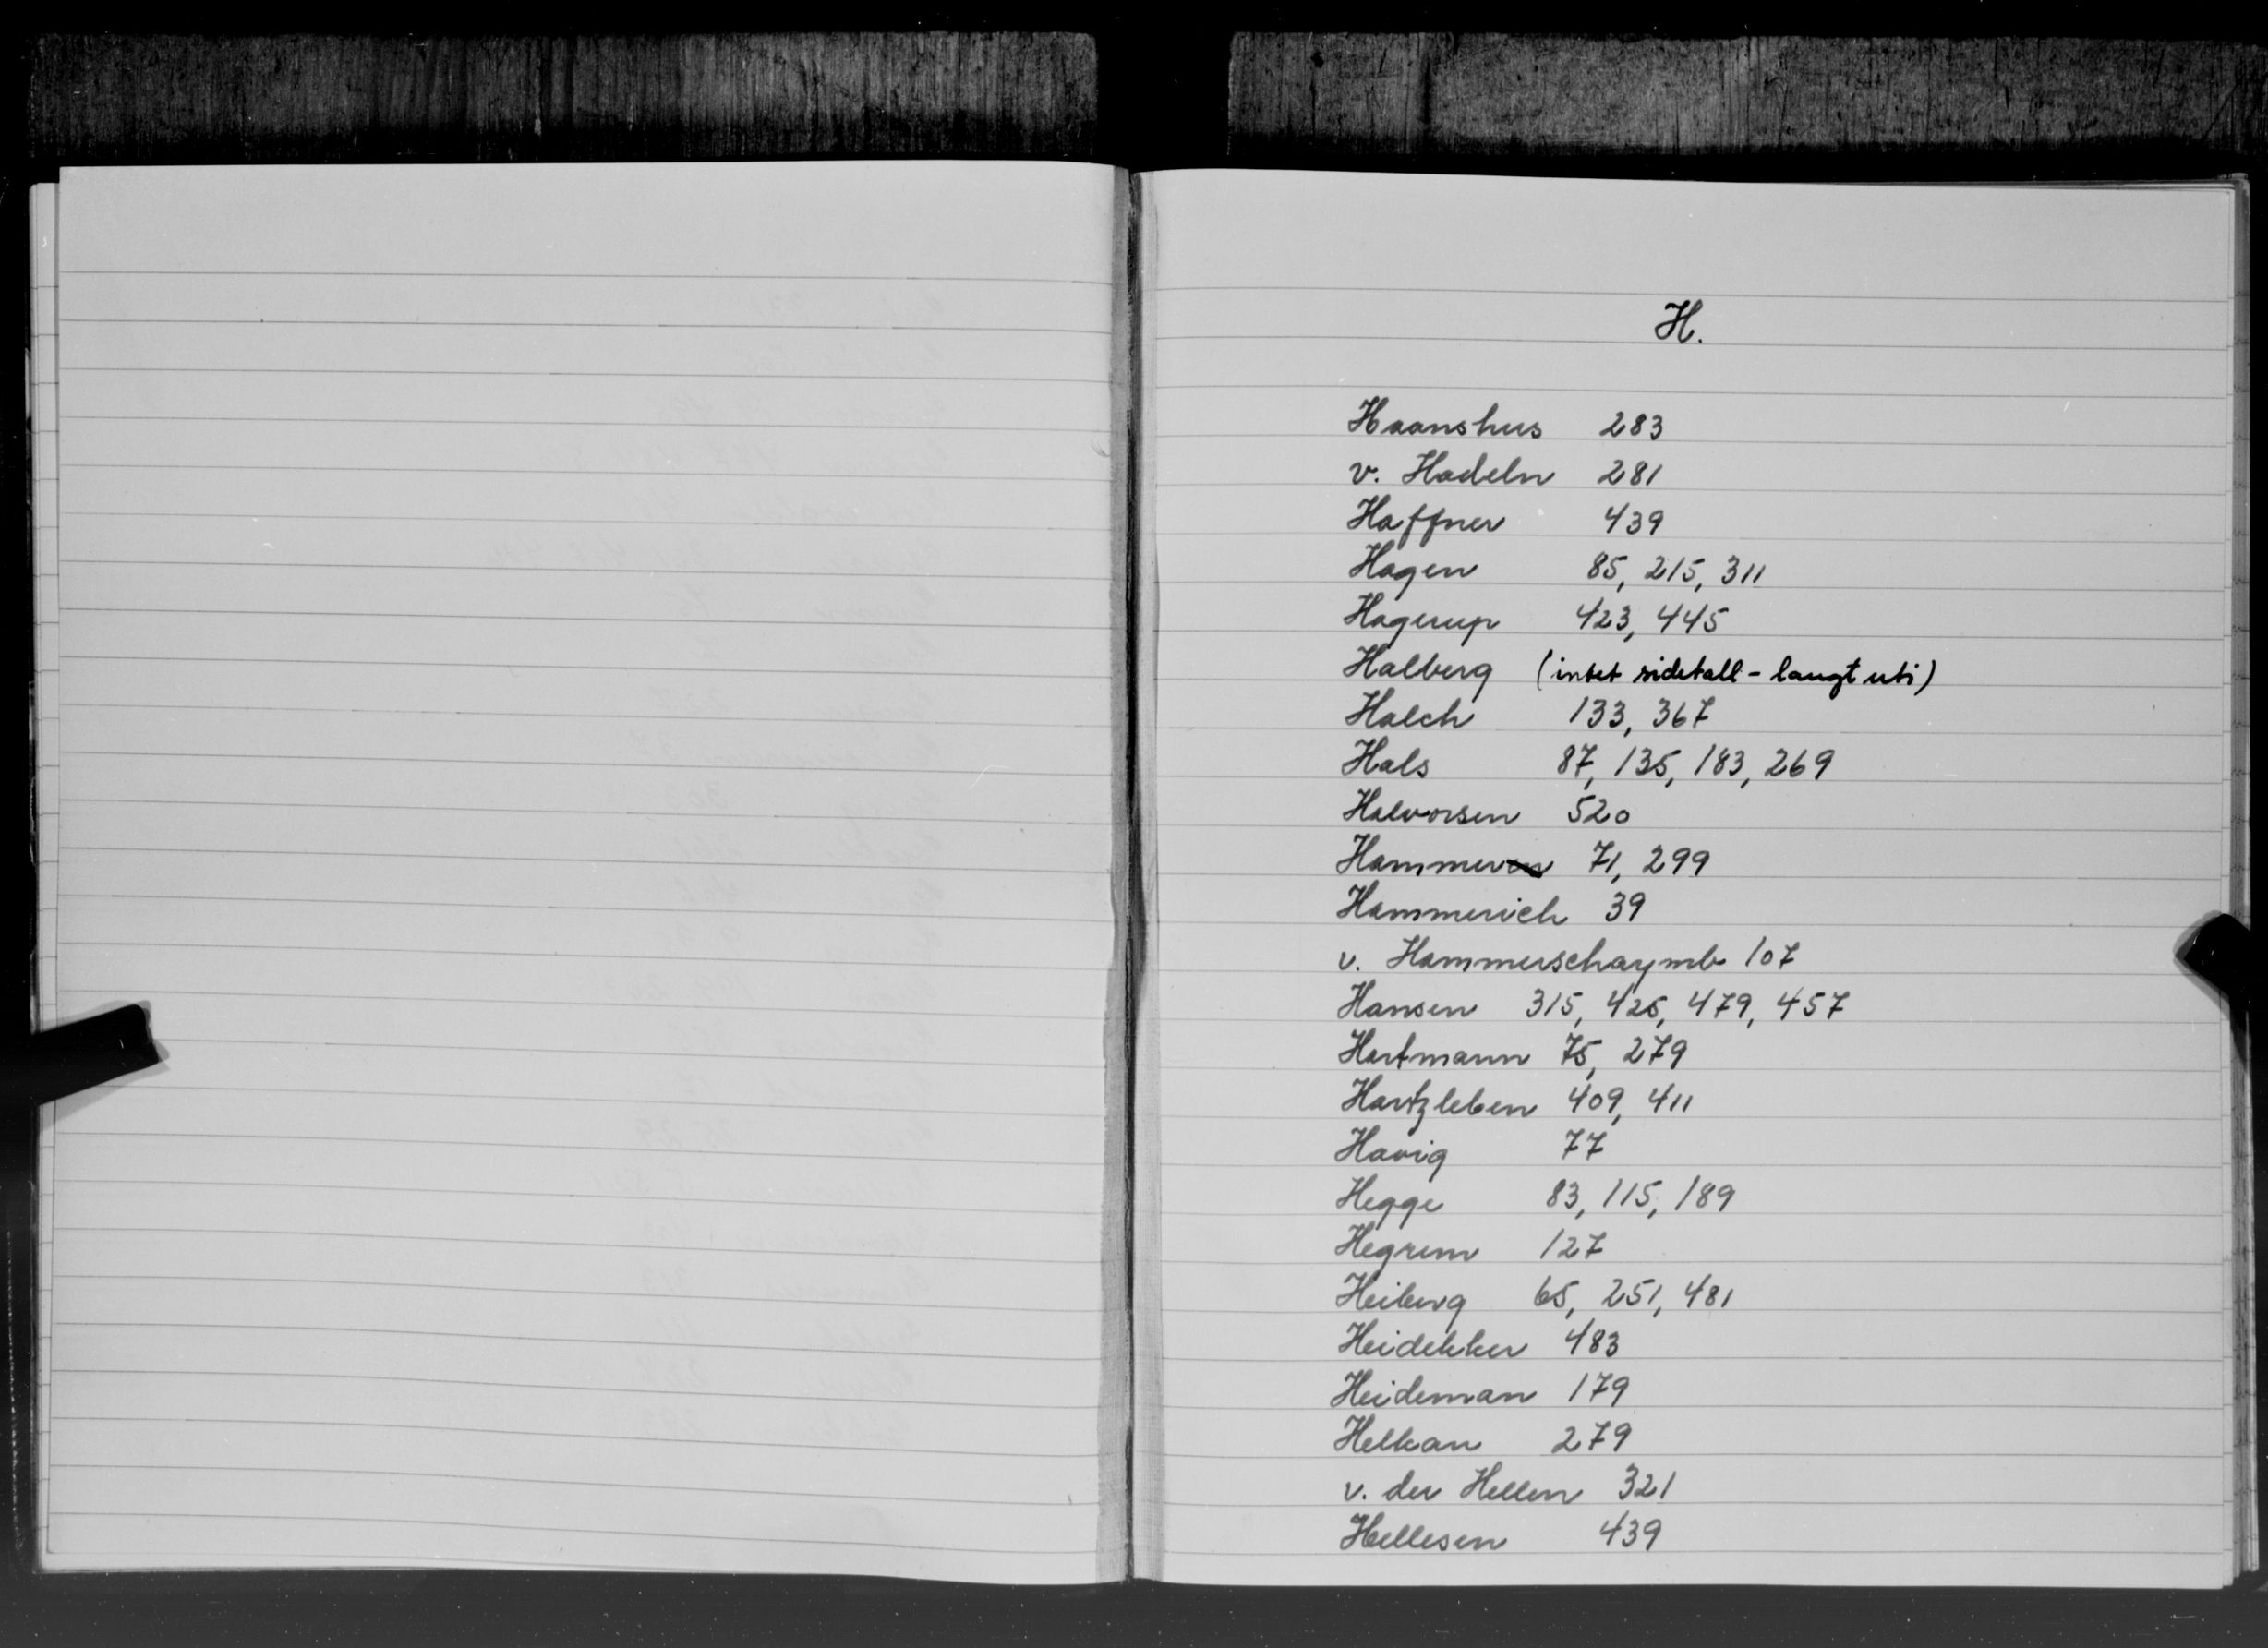 H.
Haanshus 283
v. Hadeln 281
Haffner 439
Hagen 85, 215, 311
Hagerup 423, 445
Halberg (intet sidetall - langt uti)
Halch 133, 367
Hals 87, 135, 183, 269
Halvorsen 520
Hammer 71, 299
Hammerich 39
v. Hammerschaymb 107
Hansen 315, 425, 479, 457
Hartmann 75, 279
Hartzleben 409, 411
Havig 77
Hegge 83, 115, 189
Hegrem 127
Heiberg 65, 251, 481
Heidekker 483
Heideman 179
Helkan 279
v. der Hellen 321
Hellesen 439